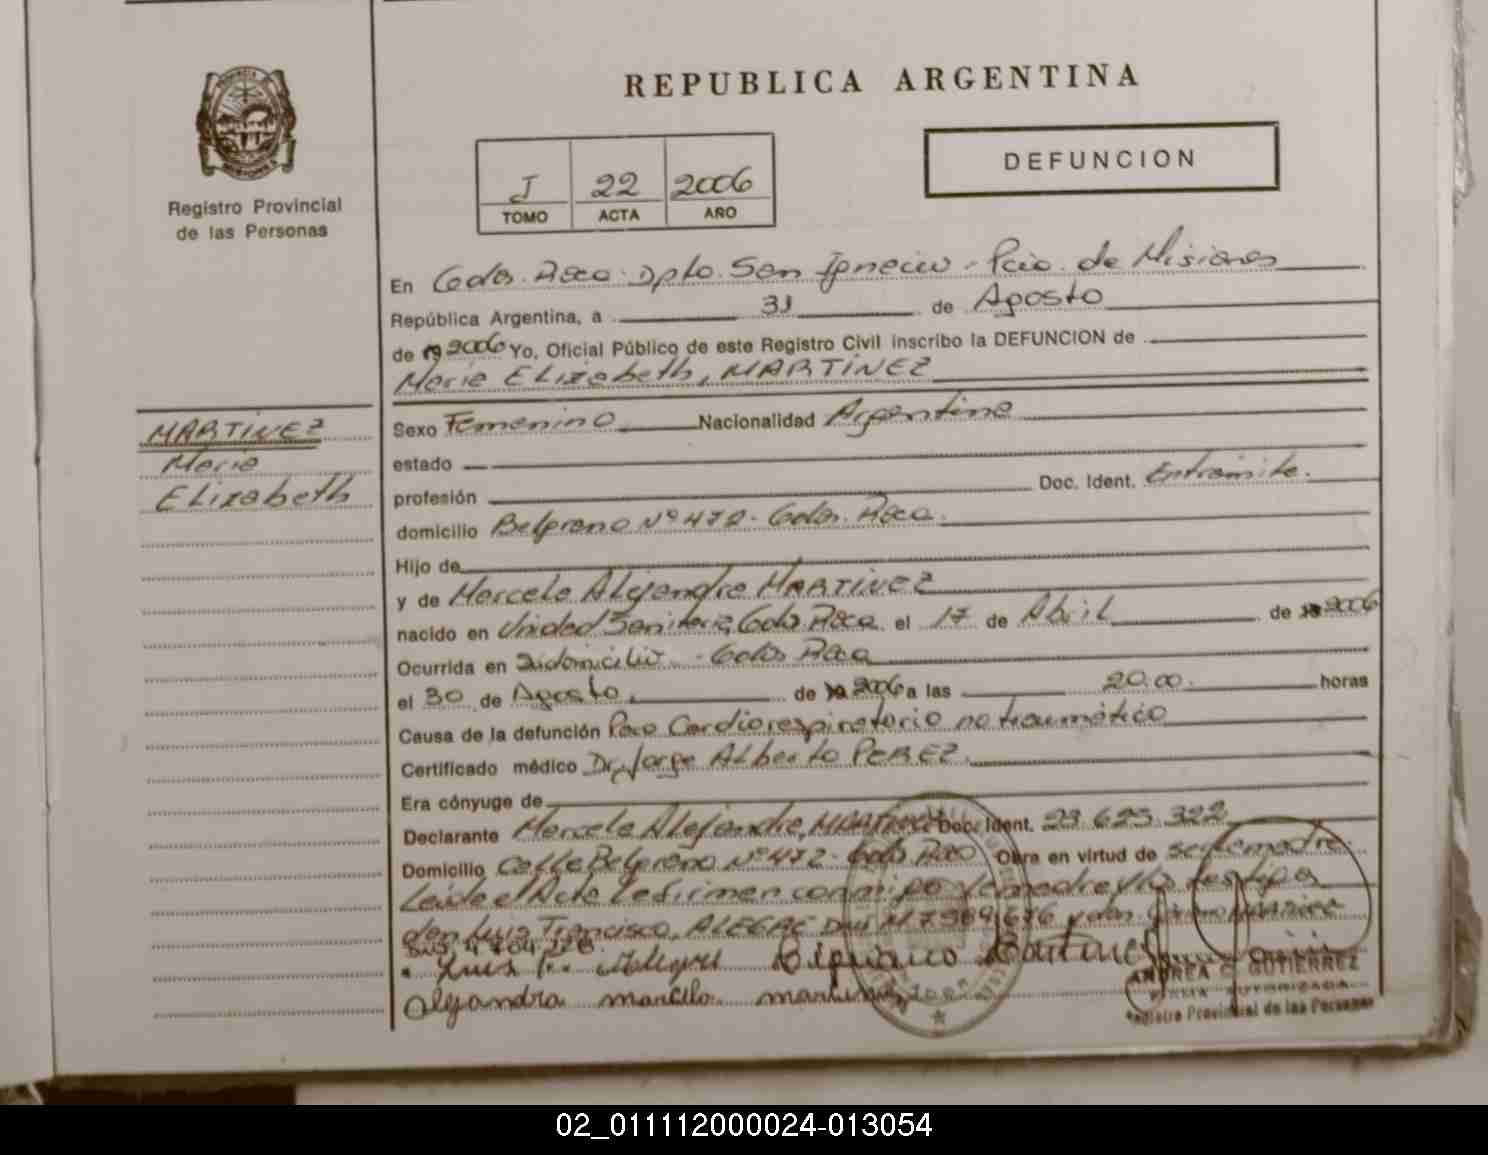 REPUBLICA ARGENTINA
DEFUNCION
Registro Provincial
de las Personas
I 22 2006
TOMO ACTA AÑO
En Gdor. Roca. Dpto. San Ignacio - Pcia. de Misiones
República Argentina, a 31 de Agosto
de 19 2006 Yo, Oficial Público de este Registro Civil inscribo la DEFUNCION de
María Elizabeth, MARTINEZ
MARTINEZ
María
Elizabeth
Sexo Femenino Nacionalidad Argentina
estado
profesión Doc. Ident. Entramite.
domicilio Belgrano Nº 472 - Gdor. Roca.
Hijo de
y de Marcela Alejandra MARTINEZ
nacido en Unidad Sanitaria, Gdor. Roca el 17 de Abril de 2006
Ocurrida en su domicilio - Gdor. Roca
el 30 de Agosto de 19 2006 a las 20.00. horas
Causa de la defunción Paro Cardiorespiratorio no traumático
Certificado médico Dr. Jorge Alberto PEREZ.
Era cónyuge de
Declarante Marcela Alejandra, MARTINEZ Doc. Ident. 23.625.322
Domicilio Calle Belgrano Nº 472 - Gdor. Roca Obra en virtud de ser la madre
Leida el Acta la firman conmigo la madre y los testigos
don Luis Francisco, ALEGRE DNI M 7.589.676 y don
Luis F. Alegre Martinez
Alejandra marcela martinez
ANDREA C. GUTIERREZ
FIRMA AUTORIZADA
Registro Provincial de las Personas
02_011112000024-013054